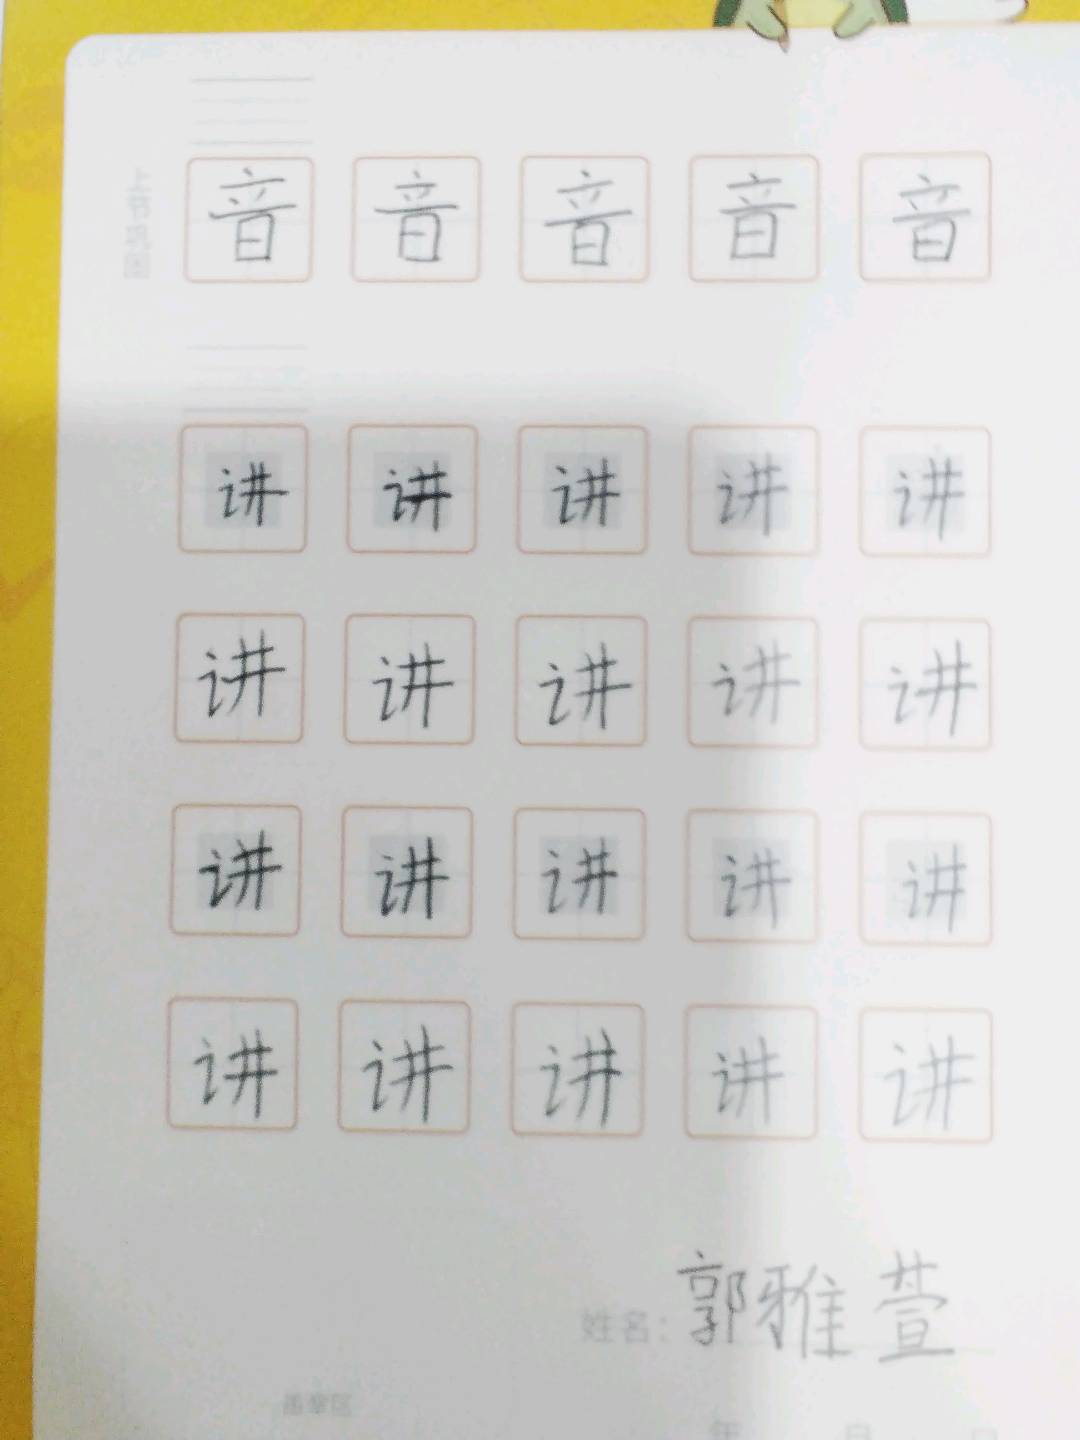 音 音 音 音 音
讲 讲 讲 讲 讲
讲 讲 讲 讲 讲
讲 讲 讲 讲 讲
讲 讲 讲 讲 讲
姓名：郭雅萱
盖章区
年 月 日